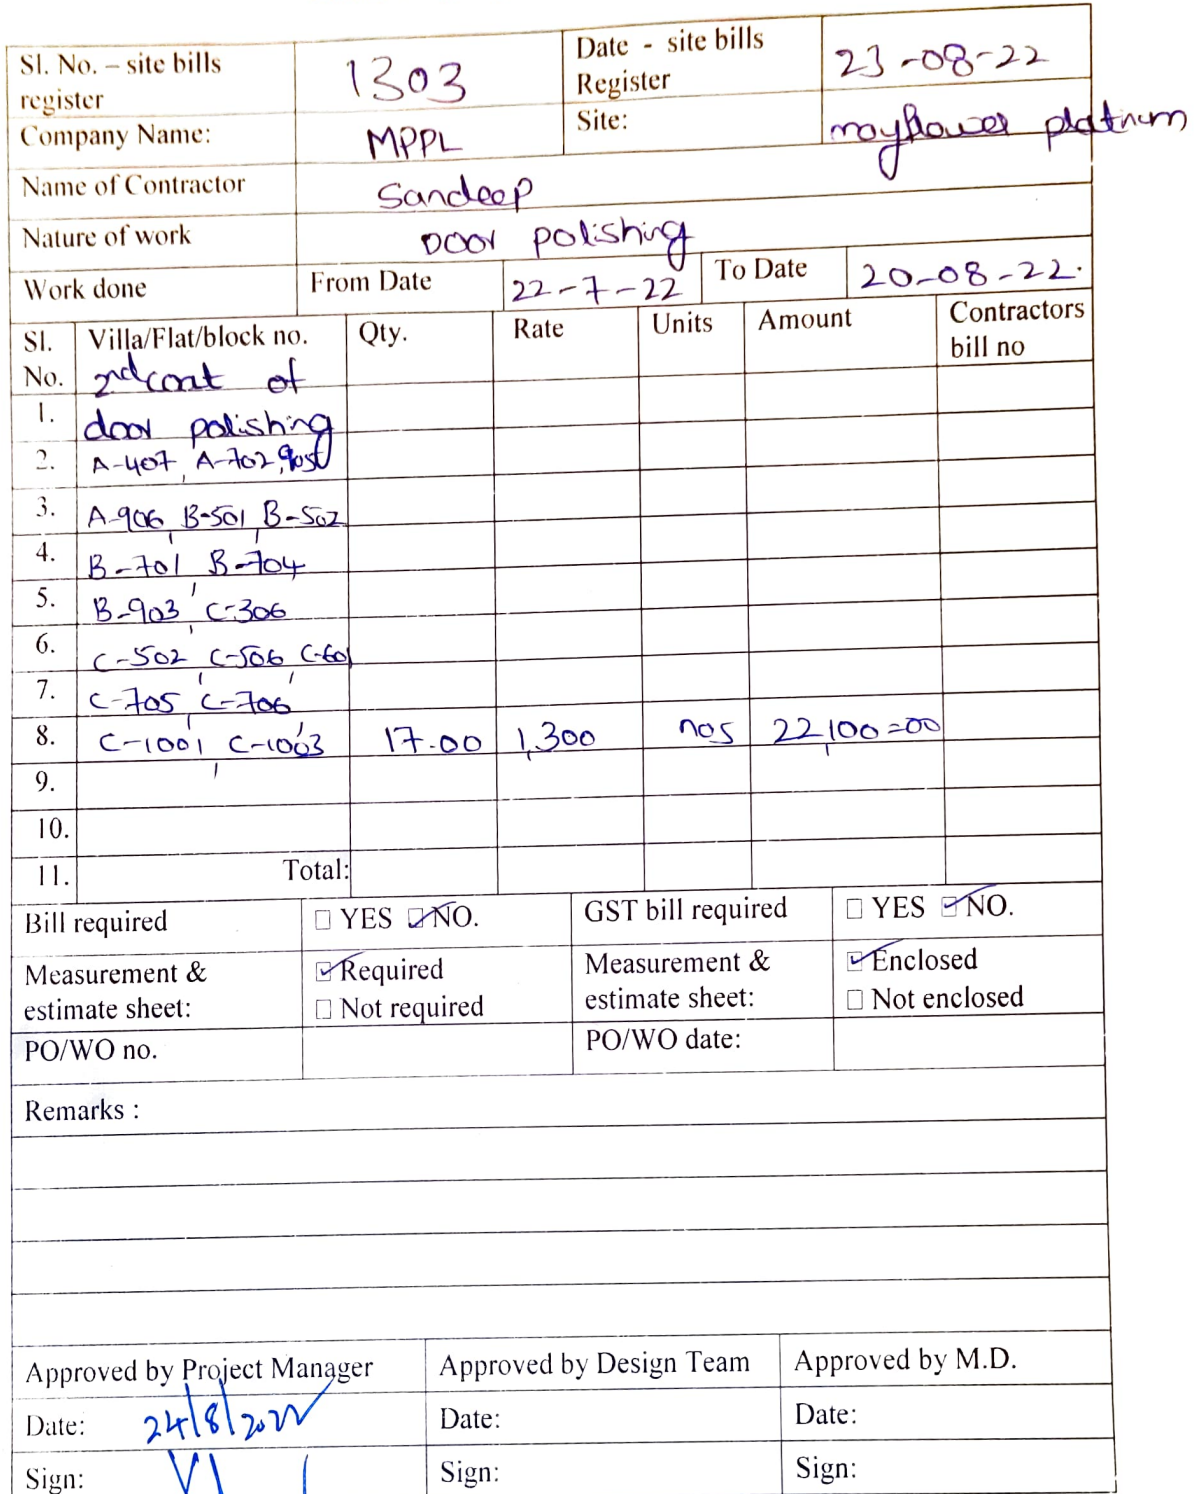 Sl. No. – site bills register 1303 Date - site bills Register 23-08-22
Company Name: MPPL Site: mayflower platinum
Name of Contractor Sandeep
Nature of work Door polishing
Work done From Date 22-7-22 To Date 20-08-22.
Sl. No. Villa/Flat/block no. Qty. Rate Units Amount Contractors bill no
2nd coat of
1. door polishing
2. A-407, A-702,
3. A-906, B-501, B-502
4. B-701, B-704
5. B-903, C-306
6. C-502, C-506, C-601
7. C-705, C-706,
8. C-1001, C-1003 17.00 1,300 nos 22,100=00
9.
10.
11. Total:
Bill required ☐ YES ☑ NO. GST bill required ☐ YES ☑ NO.
Measurement & estimate sheet: ☑ Required ☐ Not required Measurement & estimate sheet: ☑ Enclosed ☐ Not enclosed
PO/WO no. PO/WO date:
Remarks :
Approved by Project Manager Approved by Design Team Approved by M.D.
Date: 24/8/2022 Date: Date:
Sign: Sign: Sign: